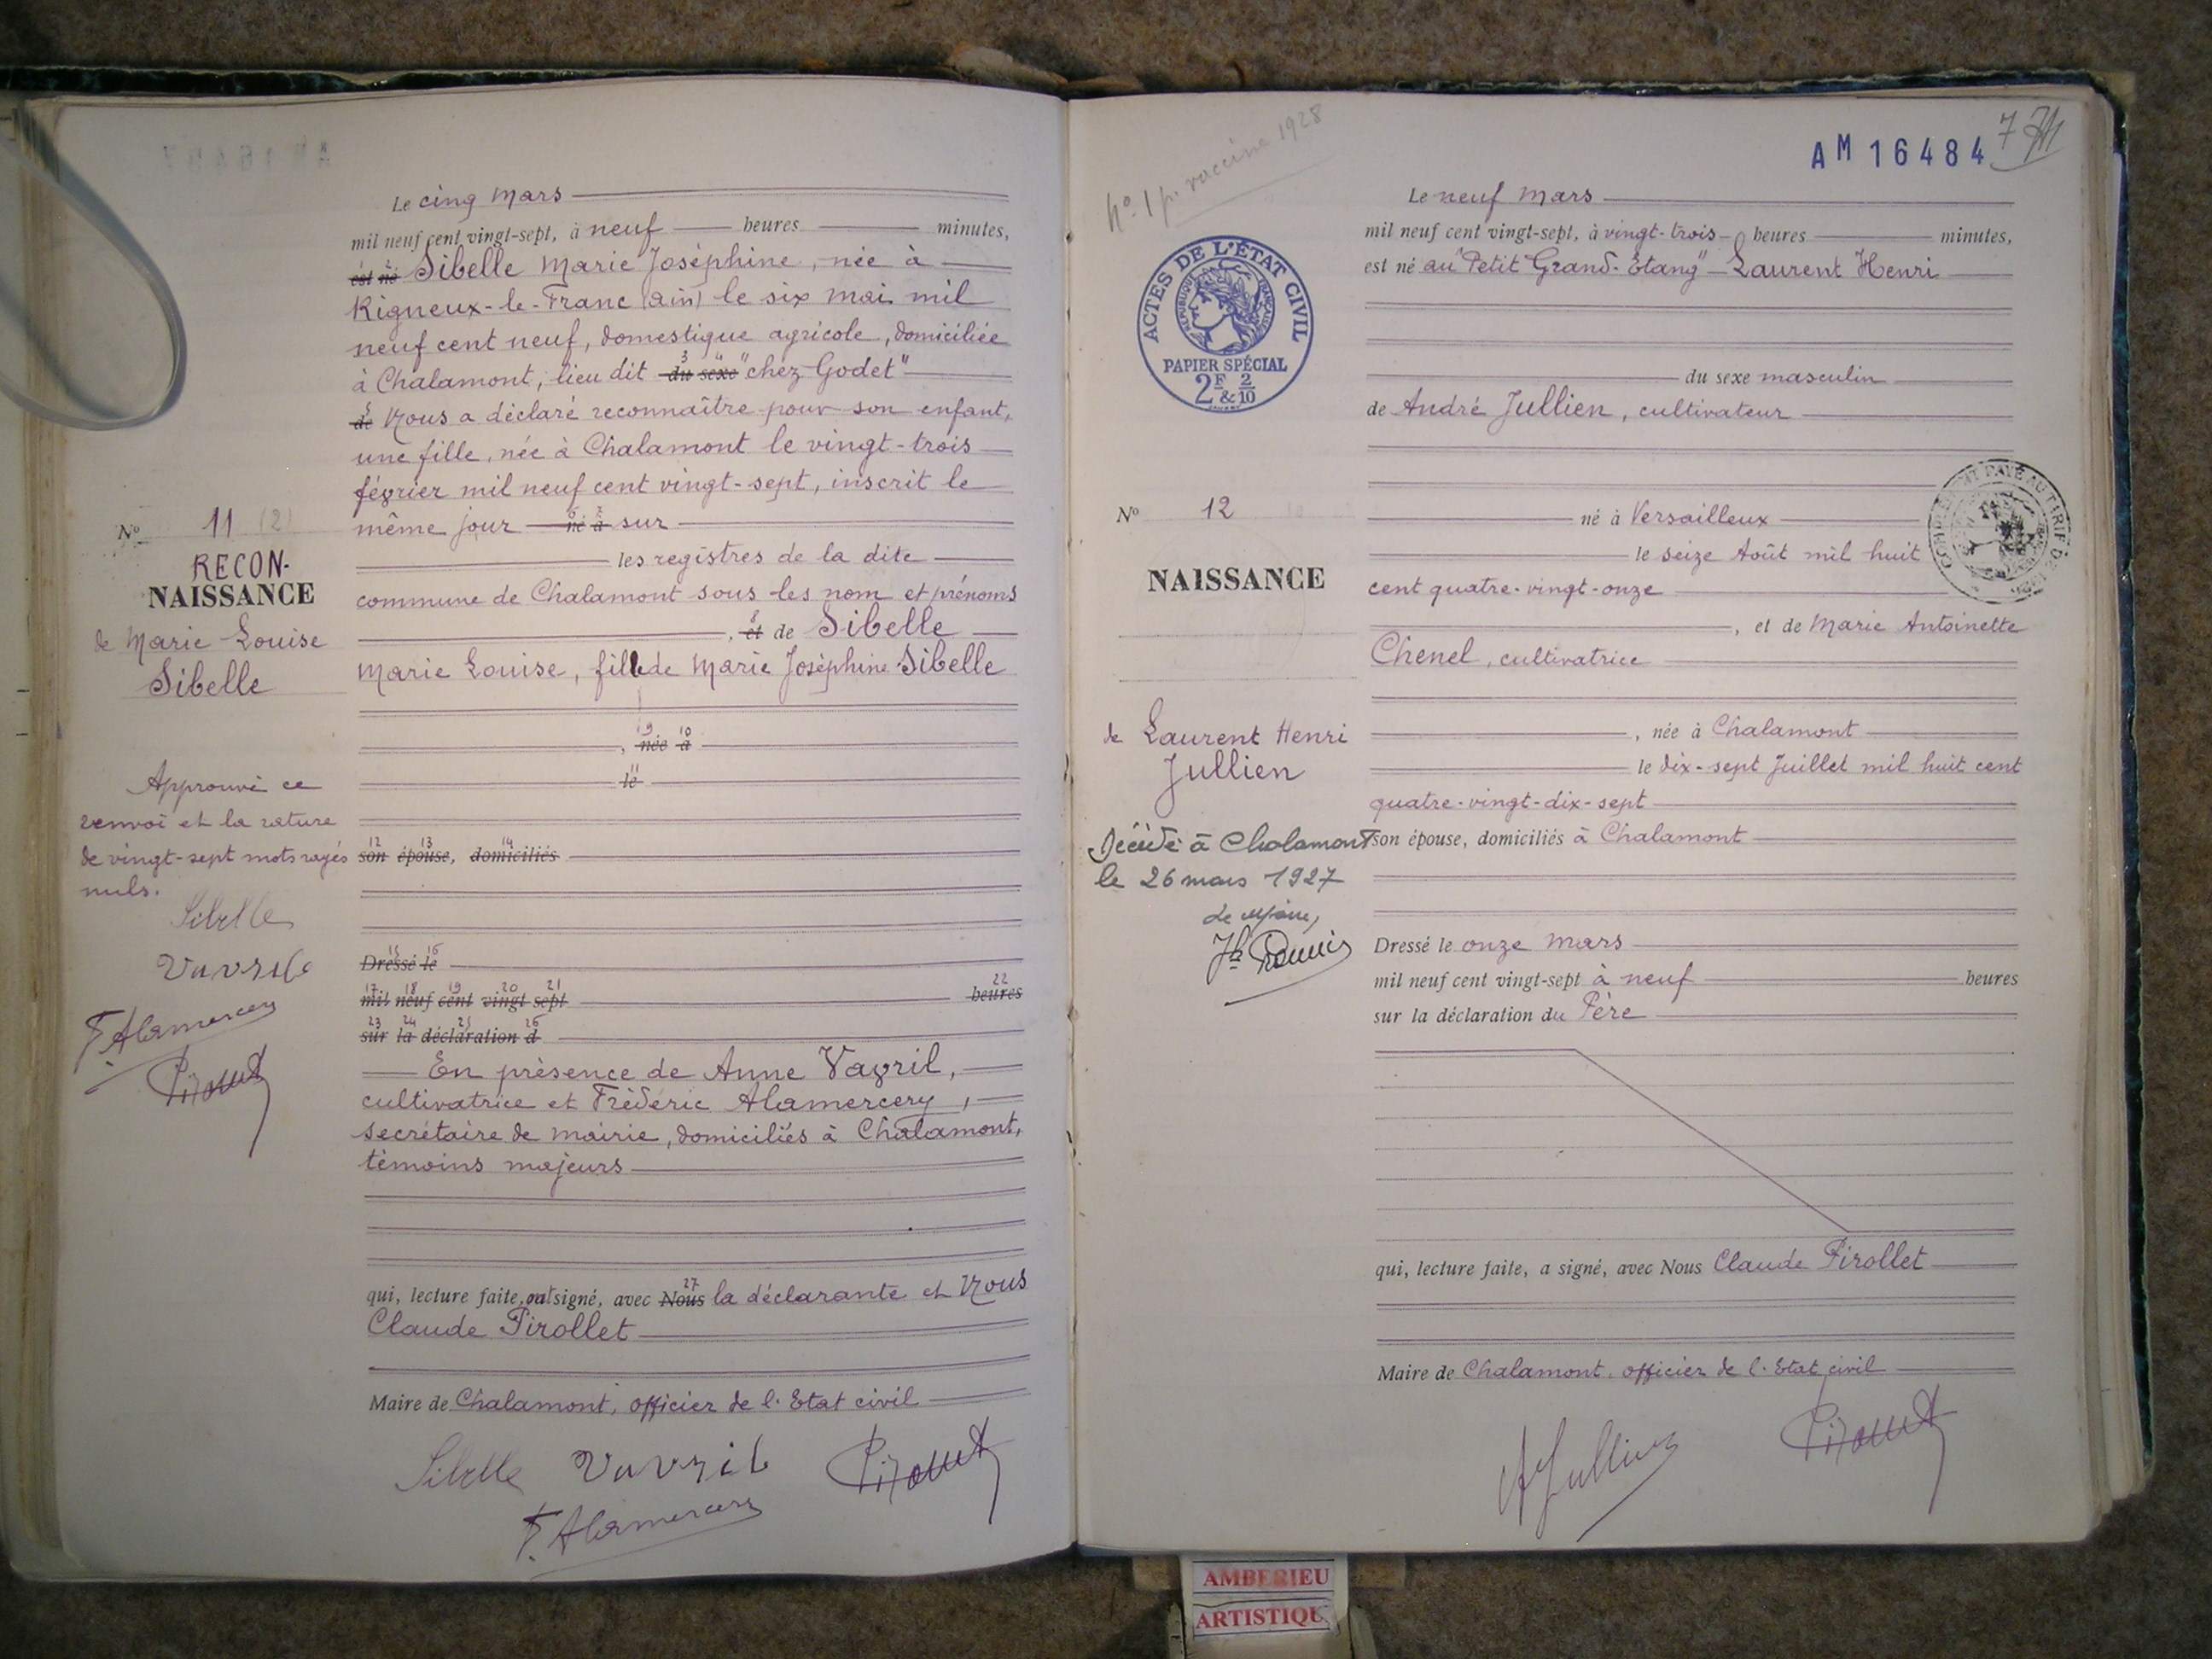 Le cinq mars
mil neuf cent vingt-sept, à neuf heures minutes,
est né Sibelle Marie Joséphine, née à
Rigneux-le-Franc (ain) le six mai mil
neuf cent neuf, domestique agricole, domiciliée
à Chalamont, lieu dit du sexe "chez Godet"
de Nous a déclaré reconnaître pour son enfant,
une fille, née à Chalamont le vingt-trois
février mil neuf cent vingt-sept, inscrit le
même jour né à sur
les registres de la dite
commune de Chalamont sous les nom et prénoms
, et de Sibelle
Marie Louise, fille de Marie Joséphine Sibelle
, née à
le
son épouse, domiciliés
Dressé le
mil neuf cent vingt sept heures
sur la déclaration d
En présence de Anne Vavril,
cultivatrice et Frédéric Alamercery,
secrétaire de mairie, domiciliés à Chalamont,
témoins majeurs
qui, lecture faite, ont signé, avec Nous la déclarante et Nous
Claude Pirollet
Maire de Chalamont, officier de l'Etat civil
Sibelle Vavril Pirollet
F. Alamercery
No 11 (2)
RECON-
NAISSANCE
de Marie Louise
Sibelle
Approuvé ce
renvoi et la rature
de vingt-sept mots rayés
nuls.
Sibelle
Vavril
F. Alamercery
Pirollet
No 1 p. vaccine 1928
AM 16484
7
ACTES DE L'ÉTAT CIVIL
RÉPUBLIQUE FRANÇAISE
PAPIER SPÉCIAL
2F & 2/10
No 12
NAISSANCE
de Laurent Henri
Jullien
Décédé à Chalamont
le 26 mars 1927
Le Maire,
Le neuf mars
mil neuf cent vingt-sept, à vingt-trois heures minutes,
est né au "Petit Grand-Étang" Laurent Henri
du sexe masculin
de André Jullien, cultivateur
né à Versailleux
le seize Août mil huit
cent quatre-vingt-onze
, et de Marie Antoinette
Chenel, cultivatrice
, née à Chalamont
le dix-sept Juillet mil huit cent
quatre-vingt-dix-sept
son épouse, domiciliés à Chalamont
Dressé le onze mars
mil neuf cent vingt-sept à neuf heures
sur la déclaration du Père
qui, lecture faite, a signé, avec Nous Claude Pirollet
Maire de Chalamont, officier de l'Etat civil
A Jullien Pirollet
AMBERIEU
ARTISTIQU